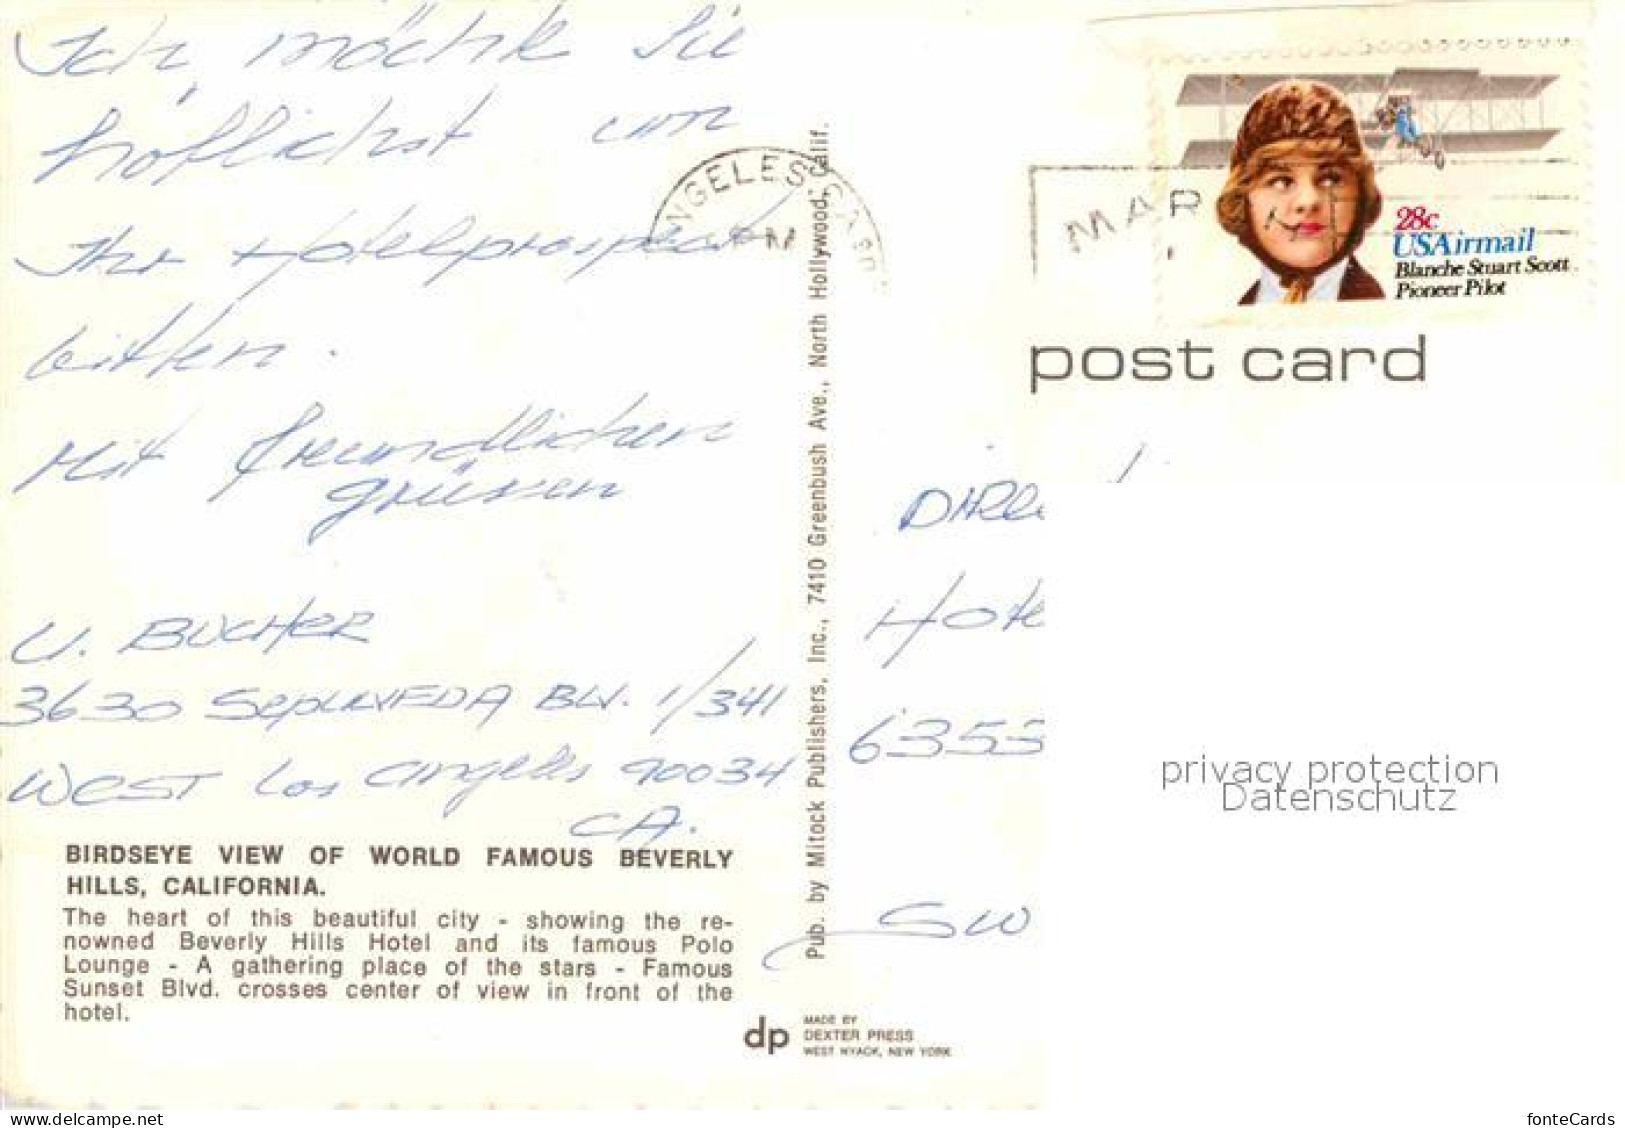 Ich möchte Sie
höflichst um
Ihr Hotelprospect
bitten.
Mit freundlichen
grüssen
U. BUCHER
3630 SEPULVEDA BLV. 1/341
WEST Los Angeles 90034
CA.
BIRDSEYE VIEW OF WORLD FAMOUS BEVERLY
HILLS, CALIFORNIA.
The heart of this beautiful city - showing the re-
nowned Beverly Hills Hotel and its famous Polo
Lounge - A gathering place of the stars - Famous
Sunset Blvd. crosses center of view in front of the
hotel.
Pub. by Mitock Publishers, Inc., 7410 Greenbush Ave., North Hollywood, Calif.
dp
MADE BY
DEXTER PRESS
WEST NYACK, NEW YORK
NGELES CA 900
PM
MAR
28c
USAirmail
Blanche Stuart Scott
Pioneer Pilot
post card
DIRE
Hote
6353
SW
privacy protection
Datenschutz
www.delcampe.net
fonteCards